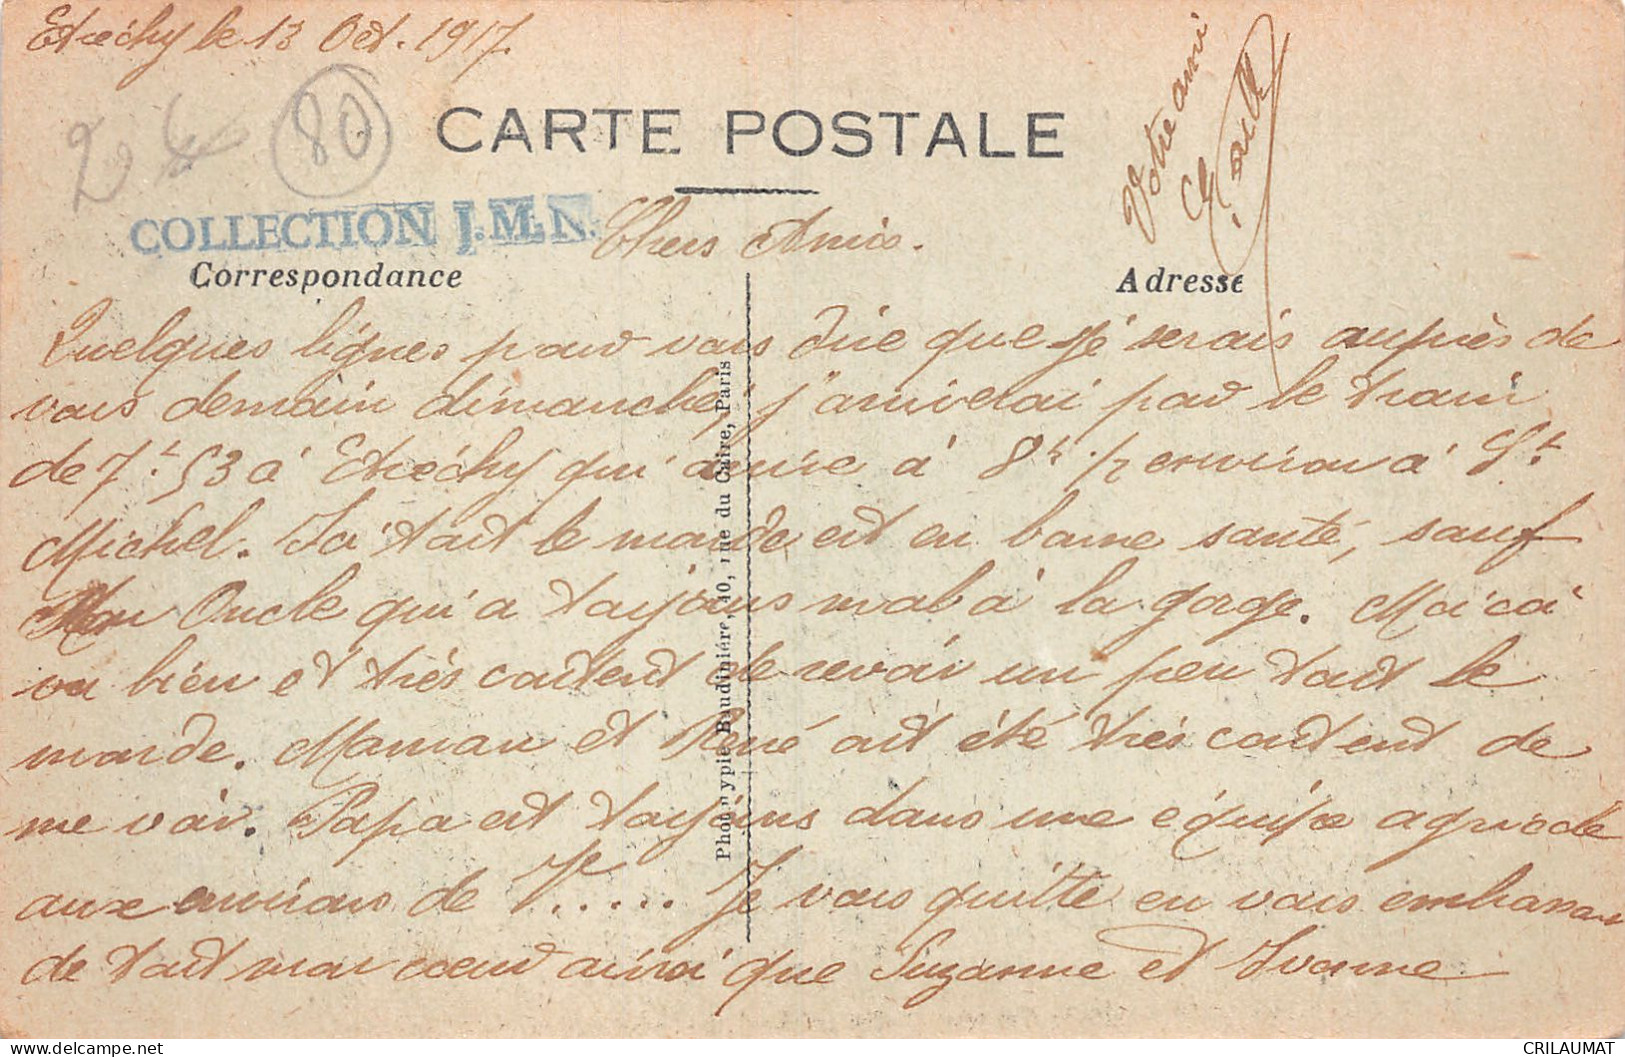 Etréchy le 13 Oct. 1917.
80
CARTE POSTALE
COLLECTION J.M.N.
Chers Amis.
Correspondance
Adresse
Quelques lignes pour vous dire que je serais auprès de
vous demain dimanche, j'arriverai par le train
de 7h.53 à Etréchy qui arrive à 8h.1/2 environ à St.
Michel. Ici tout le monde est en bonne santé, sauf
Mon Oncle qui a toujours mal à la gorge. Moi ca
va bien et très content de revoir un peu tout le
monde. Maman et René ont été très content de
me voir. Papa est toujours dans une équipe agricole
aux environs de V..... Je vous quitte en vous embrassant
de tout mon cœur ainsi que Suzanne et Yvonne
Votre ami
Phototypie Baudinière, 40, rue du Caire, Paris
CRILAUMAT